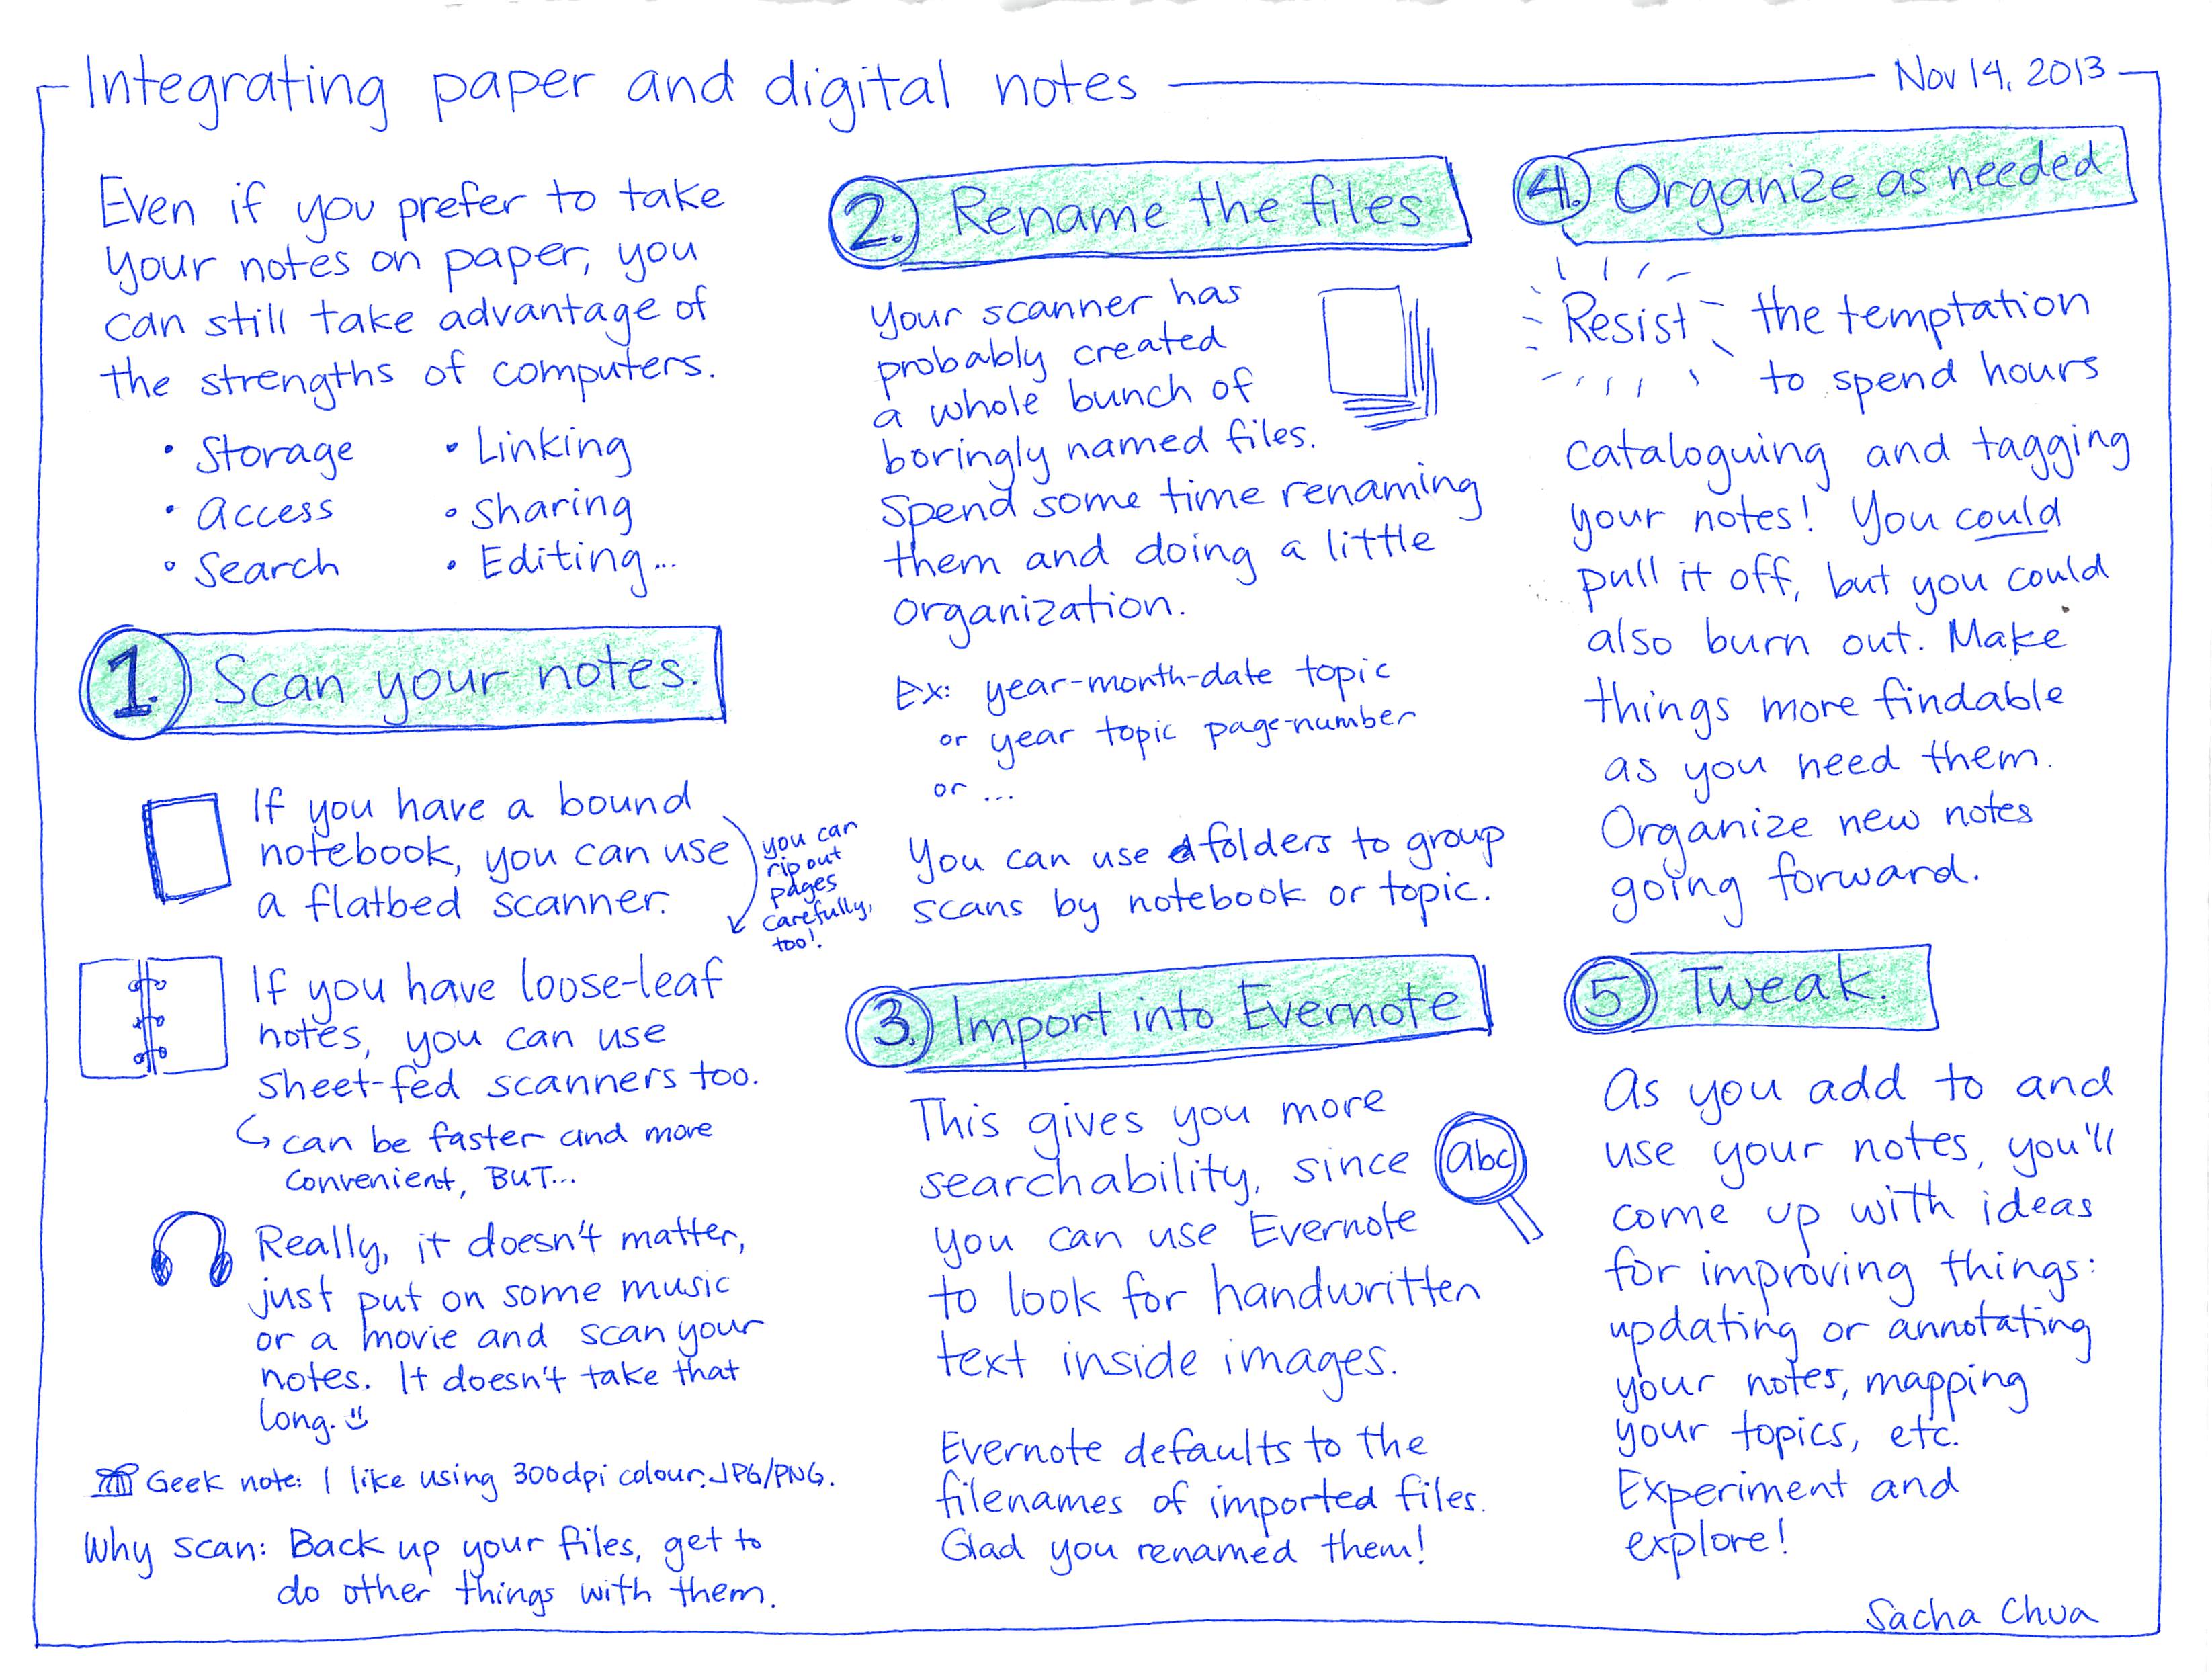 Integrating paper and digital notes
Nov 14, 2013
Even if you prefer to take
your notes on paper, you
can still take advantage of
the strengths of computers.
• Storage
• Access
• Search
• Linking
• Sharing
• Editing...
1. Scan your notes.
If you have a bound
notebook, you can use
a flatbed scanner.
you can
rip out
pages
carefully,
too!
If you have loose-leaf
notes, you can use
sheet-fed scanners too.
can be faster and more
convenient, BUT...
Really, it doesn't matter,
just put on some music
or a movie and scan your
notes. It doesn't take that
long.
Geek note: I like using 300dpi colour JPG/PNG.
Why scan: Back up your files, get to
do other things with them.
2. Rename the files
Your scanner has
probably created
a whole bunch of
boringly named files.
Spend some time renaming
them and doing a little
organization.
Ex: year-month-date topic
or year topic page-number
or ...
You can use folders to group
scans by notebook or topic.
3. Import into Evernote
This gives you more
searchability, since
you can use Evernote
to look for handwritten
text inside images.
abc
Evernote defaults to the
filenames of imported files.
Glad you renamed them!
4. Organize as needed
Resist the temptation
to spend hours
cataloguing and tagging
your notes! You could
pull it off, but you could
also burn out. Make
things more findable
as you need them.
Organize new notes
going forward.
5 Tweak.
As you add to and
use your notes, you'll
come up with ideas
for improving things:
updating or annotating
your notes, mapping
your topics, etc.
Experiment and
explore!
Sacha Chua